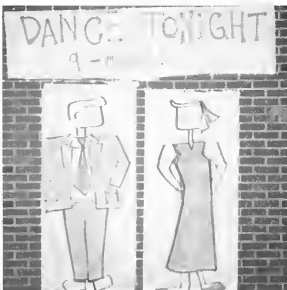 DANC.. TONIGHT
9 -